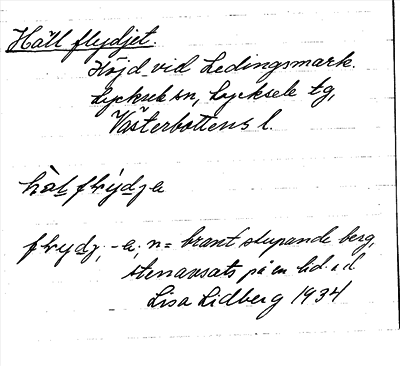 Häll flydjet.
Höjd vid Ledingsmark.
Lycksele sn, Lycksele tg,
Västerbottens l.
flrydz, -a, n = brant stupande berg,
stenavsats på en lid. e d
Lisa Lidberg 1934